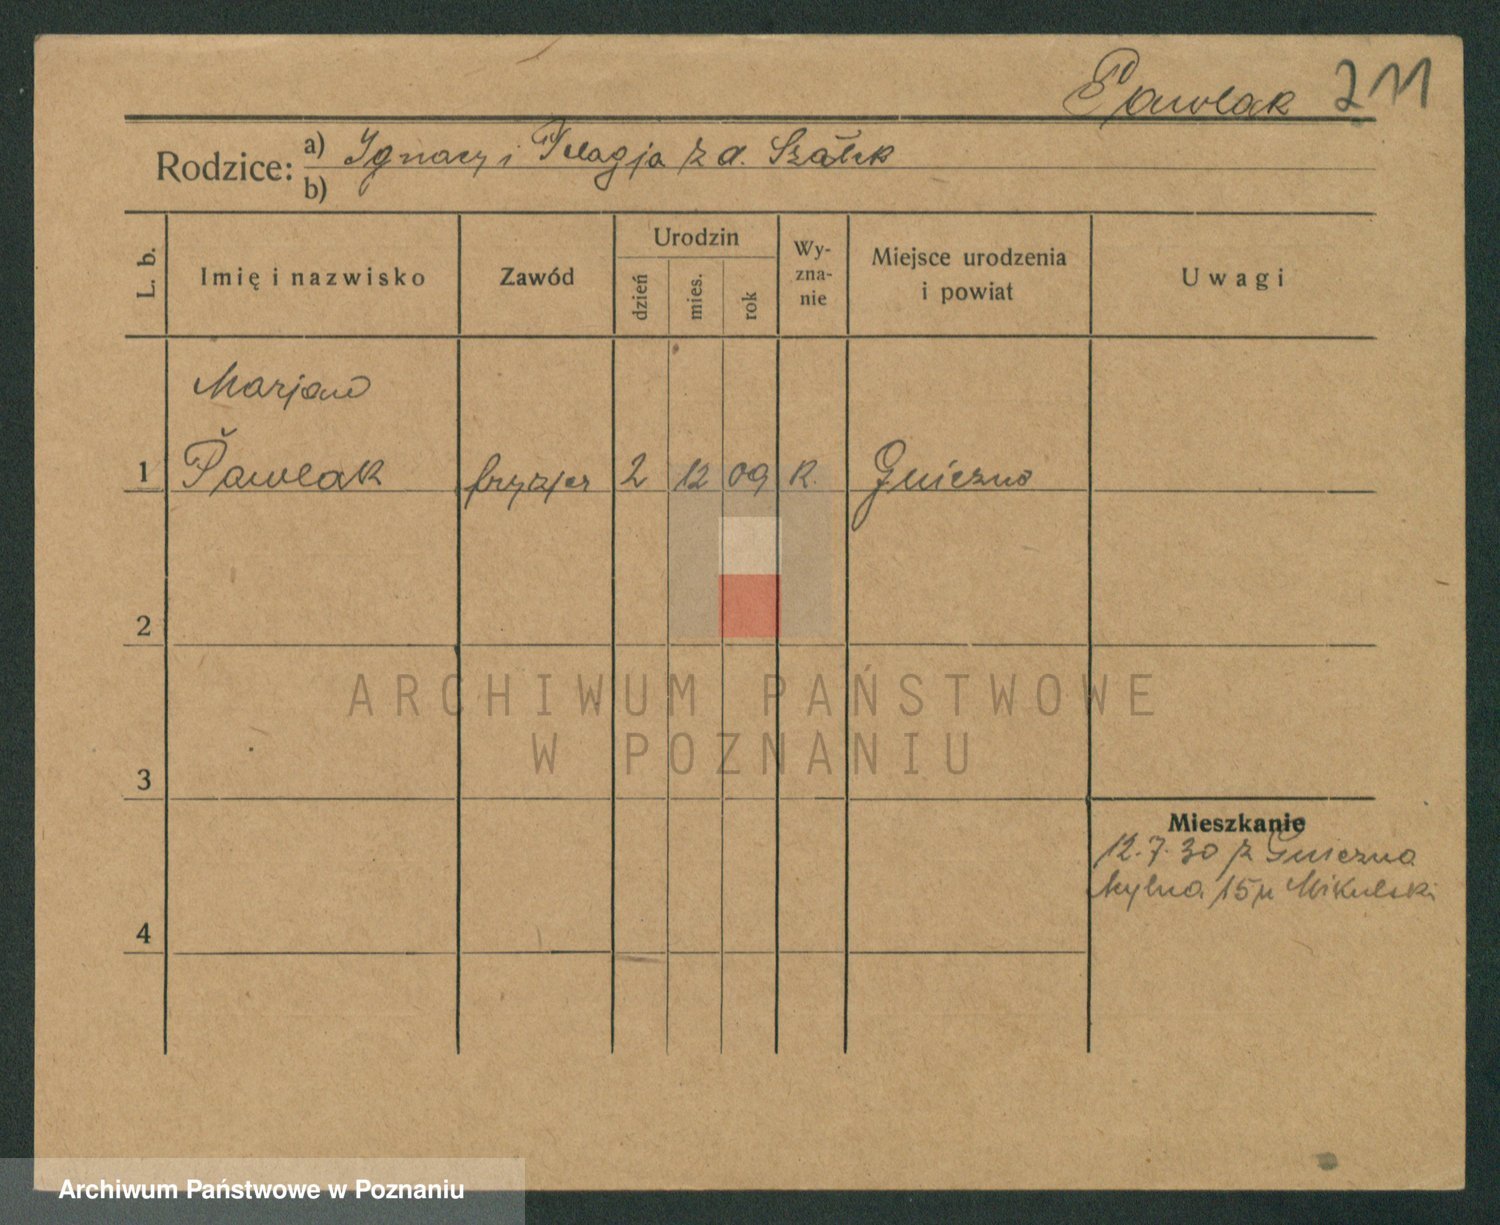 Pawlak 211
Rodzice: a) Ignacy i Pelagja z d. Szałek
b)
L. b. Imię i nazwisko Zawód Urodzin dzień mies. rok Wy-zna-nie Miejsce urodzenia i powiat Uwagi
Marjan
1 Pawlak fryzjer 2 12 09 R. Gniezno
2
ARCHIWUM PAŃSTWOWE
W POZNANIU
3
Mieszkanie
12.7.30 z Gniezna
Mylna 15 u Mikulski
4
Archiwum Państwowe w Poznaniu